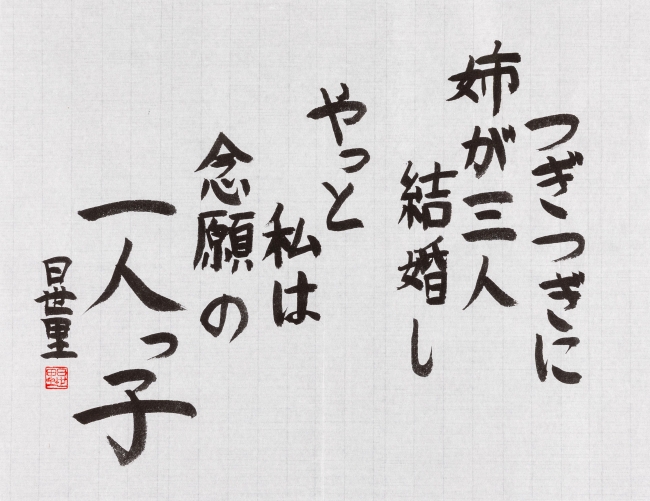 つぎつぎに
姉が三人
結婚し
やっと
私は
念願の
一人っ子
日世里